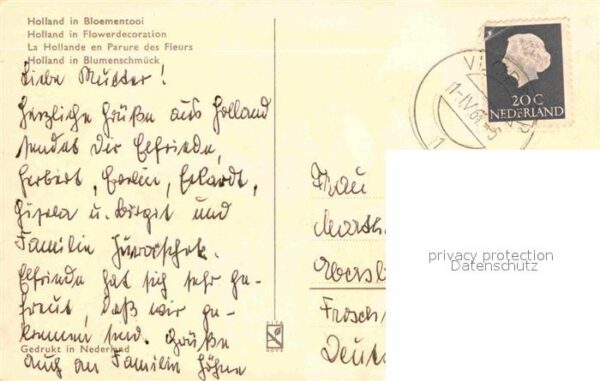 Holland in Bloementooi
Holland in Flowerdecoration
La Hollande en Parure des Fleurs
Holland in Blumenschmück
Liebe Mutter!
Herzliche Grüße aus Holland
sendet Dir Elfriede,
Herbert, Evelin, Ekhardt,
Gisela u. Birgit und
Familie
Elfriede hat sich sehr ge-
freut, daß wir ge-
kommen sind. Grüße
auch an Familie Höhne
Gedrukt in Nederland
20 C
NEDERLAND
Frau
Ebersl
Frosch
Deut
privacy protection
Datenschutz